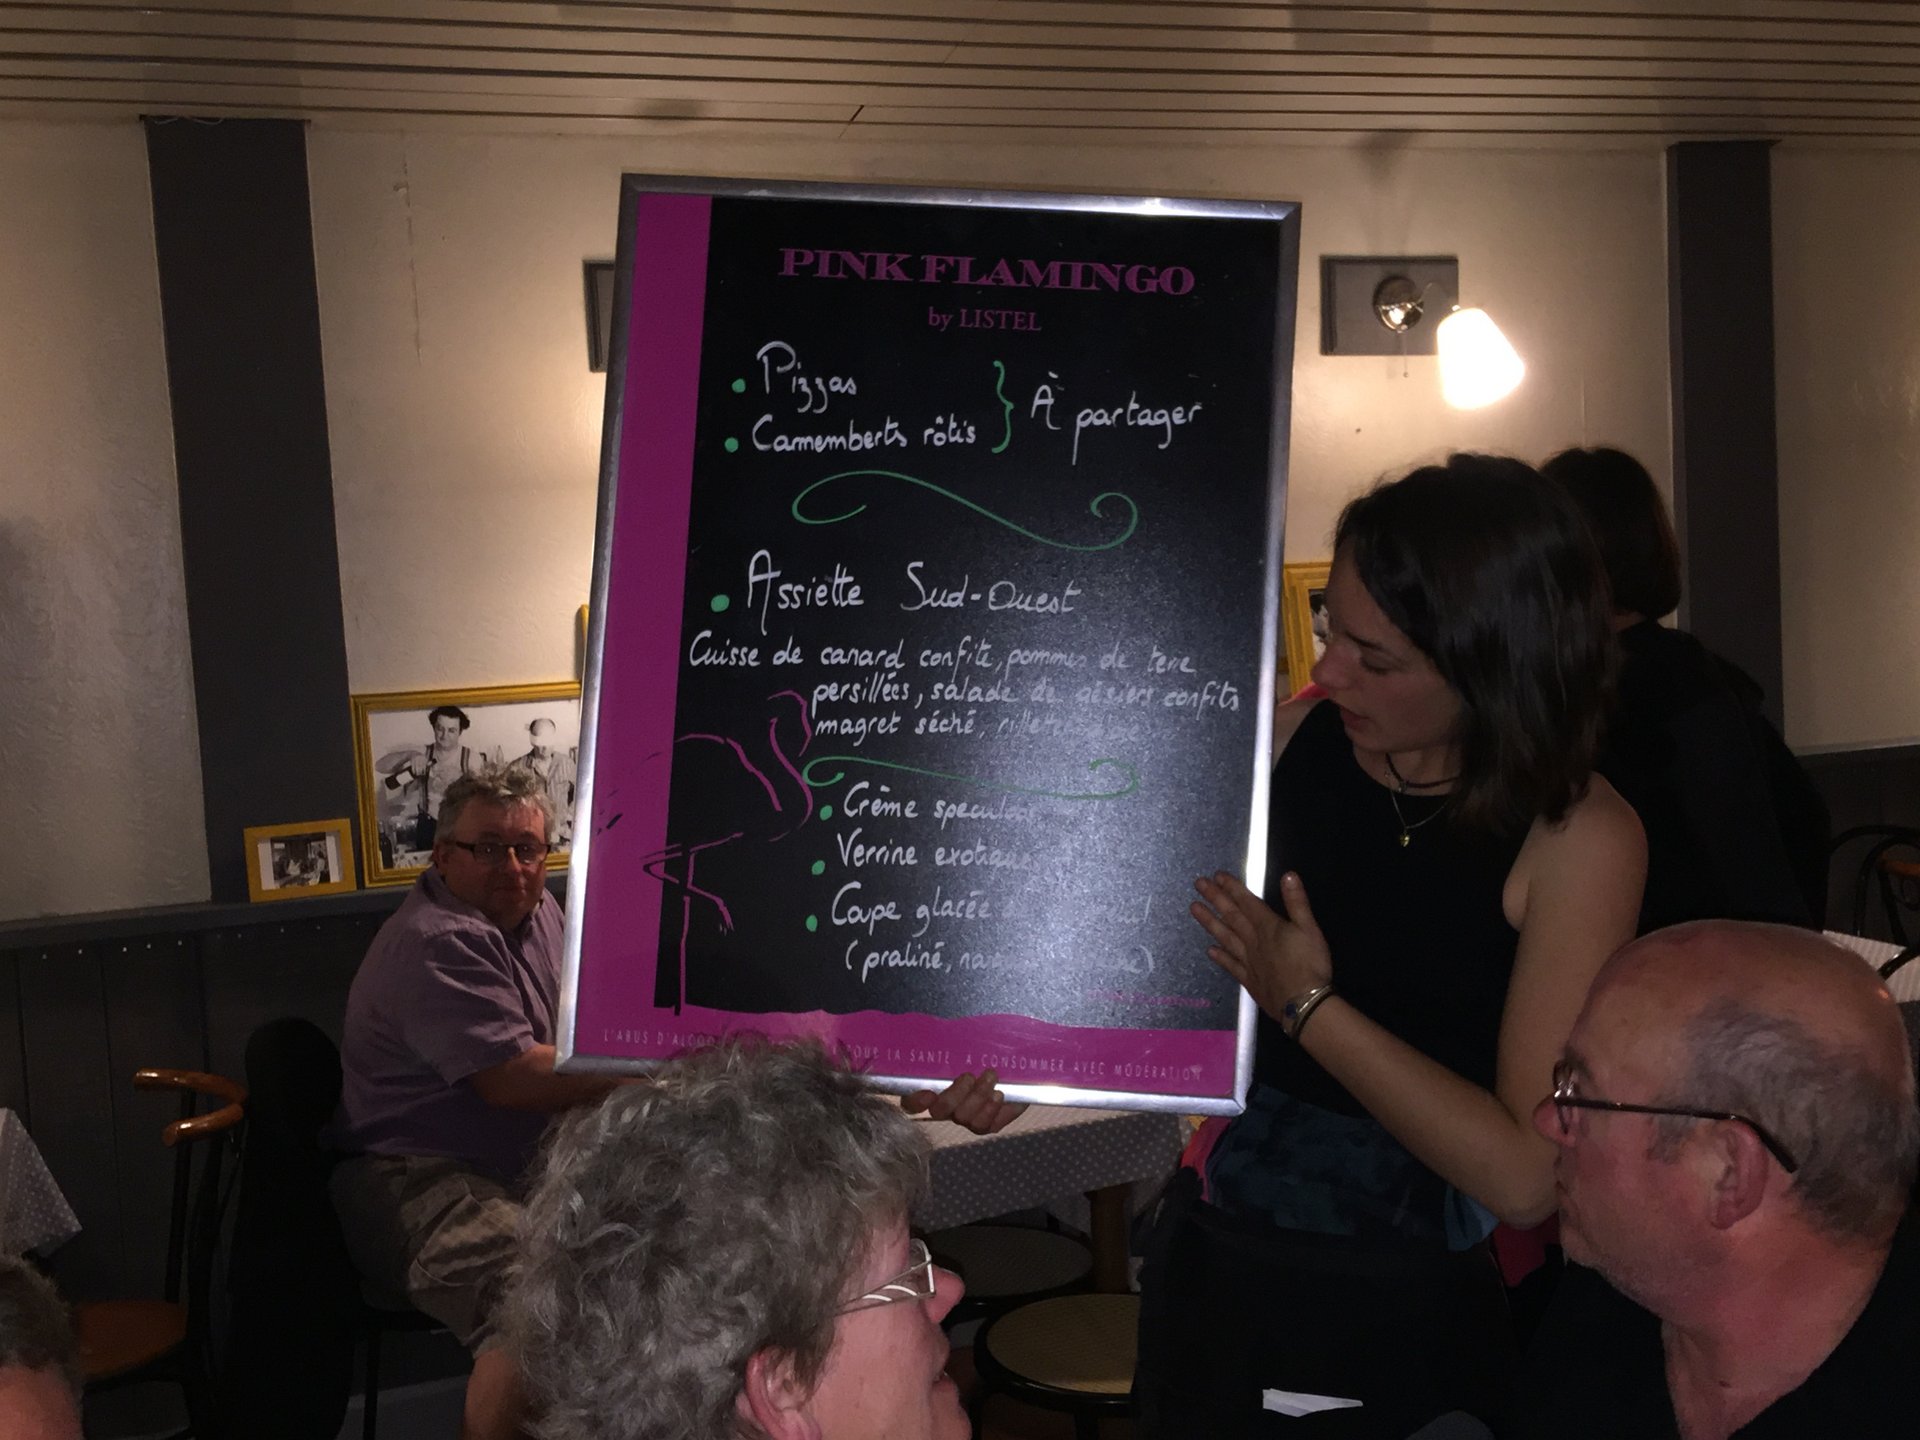 PINK FLAMINGO
by LISTEL
• Pizzas
• Camemberts rôtis } À partager
• Assiette Sud-Ouest
Cuisse de canard confite, pommes de terre
persillées, salade de gésiers confits
magret séché,
• Crème
• Verrine exotique
• Coupe glacée
(praliné,
L'ABUS D'ALCOOL LA SANTÉ A CONSOMMER AVEC MODÉRATION